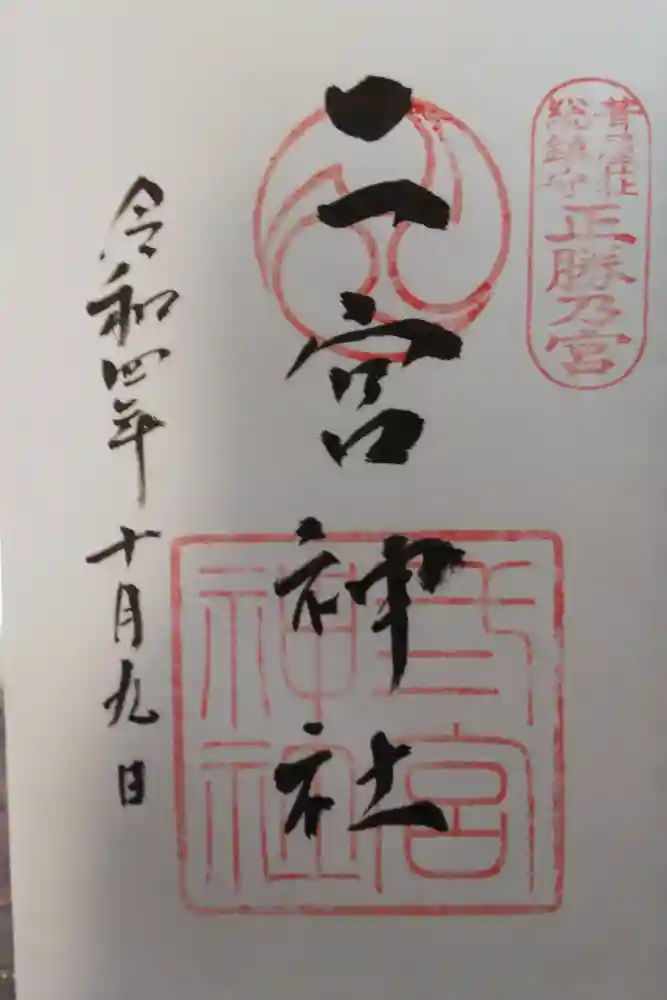 総鎮守
正勝乃宮
二宮神社
弍宮
神社
令和四年十月九日